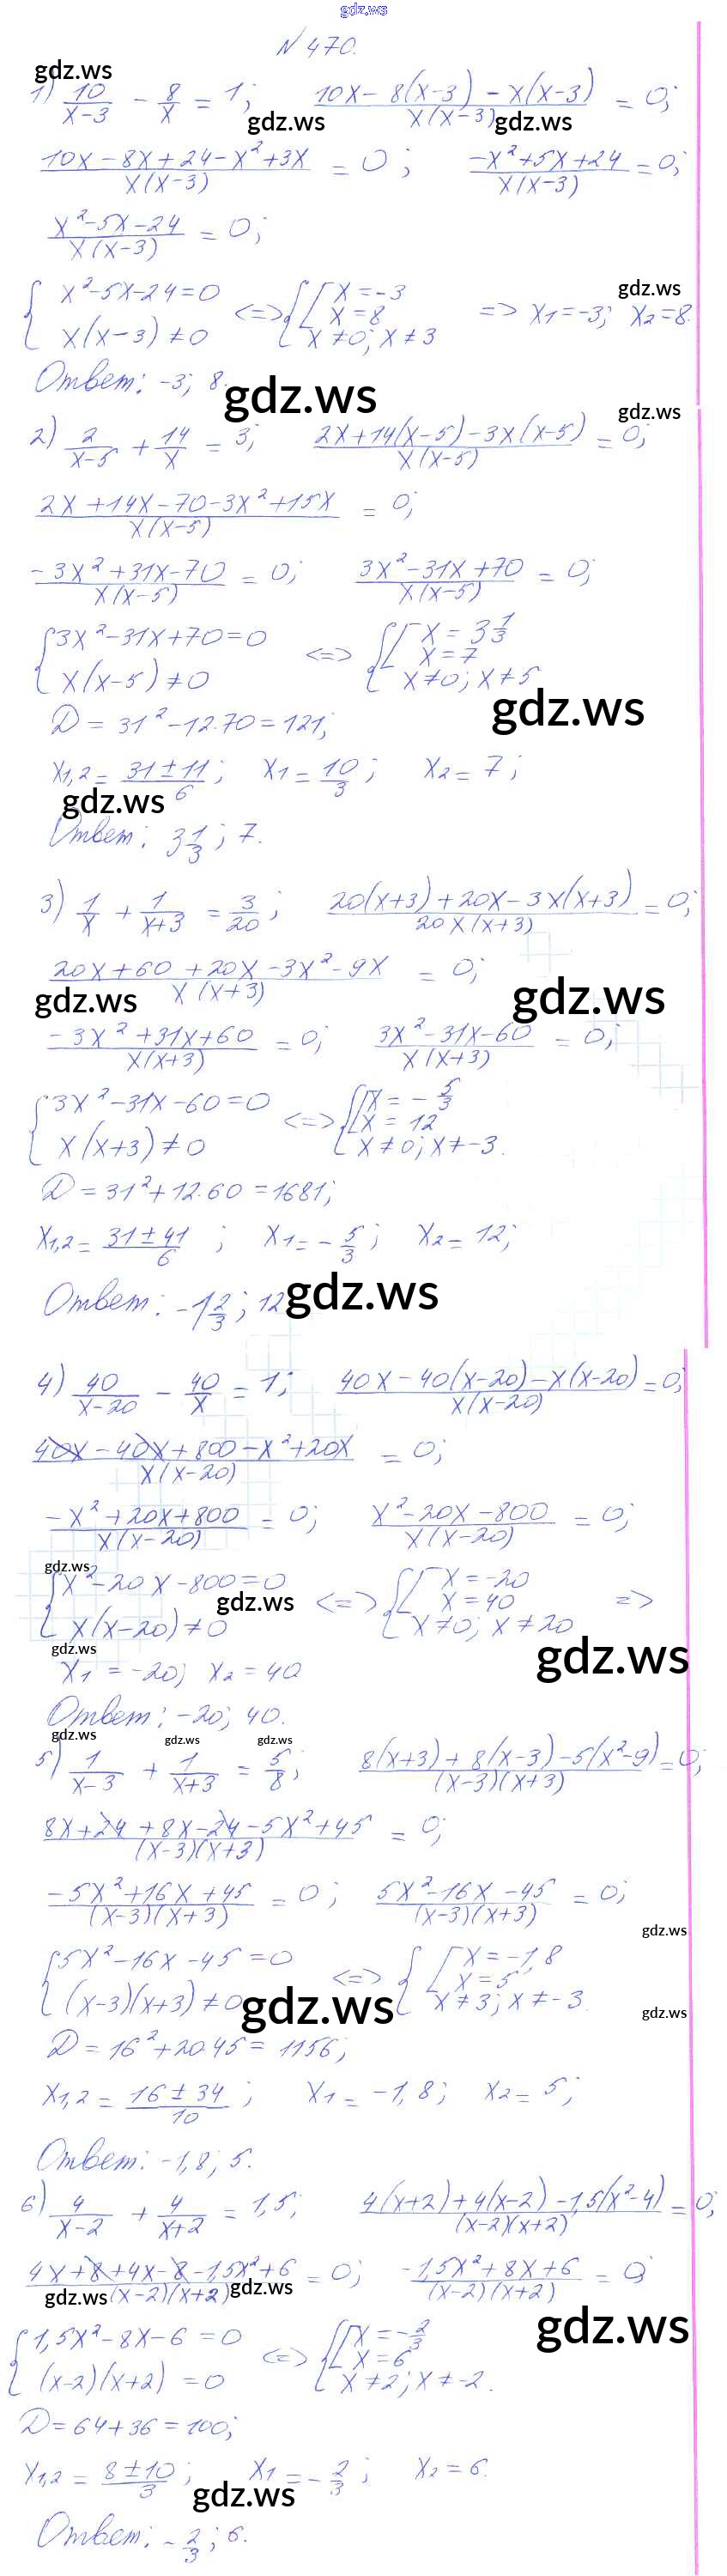 gdz.ws
N 470.
gdz.ws
1) 10/(x-3) - 8/x = 1; (10x-8(x-3)-x(x-3))/(x(x-3)) = 0;
gdz.ws gdz.ws
(10x-8x+24-x²+3x)/(x(x-3)) = 0; (-x²+5x+24)/(x(x-3)) = 0;
(x²-5x-24)/(x(x-3)) = 0;
gdz.ws
{ x²-5x-24=0 <=> { [ x=-3
x=8 => x₁=-3; x₂=8.
x(x-3)≠0 x≠0; x≠3
Ответ: -3; 8.
gdz.ws
gdz.ws
2) 2/(x-5) + 14/x = 3; (2x+14(x-5)-3x(x-5))/(x(x-5)) = 0;
(2x+14x-70-3x²+15x)/(x(x-5)) = 0;
(-3x²+31x-70)/(x(x-5)) = 0; (3x²-31x+70)/(x(x-5)) = 0;
{ 3x²-31x+70=0 <=> { [ x=3 1/3
x=7
x(x-5)≠0 x≠0; x≠5
gdz.ws
D=31²-12.70=121;
x1,2 = (31±11)/6; x₁=10/3; x₂=7;
gdz.ws
Ответ: 3 1/3; 7.
3) 1/x + 1/(x+3) = 3/20; (20(x+3)+20x-3x(x+3))/(20x(x+3)) = 0;
(20x+60+20x-3x²-9x)/(x(x+3)) = 0;
gdz.ws gdz.ws
(-3x²+31x+60)/(x(x+3)) = 0; (3x²-31x-60)/(x(x+3)) = 0;
{ 3x²-31x-60=0 <=> { [ x=-5/3
x=12
x(x+3)≠0 x≠0; x≠-3.
D=31²+12.60=1681;
x1,2 = (31±41)/6; x₁=-5/3; x₂=12;
Ответ: -1 2/3; 12
gdz.ws
4) 40/(x-20) - 40/x = 1; (40x-40(x-20)-x(x-20))/(x(x-20)) = 0;
(40x-40x+800-x²+20x)/(x(x-20)) = 0;
(-x²+20x+800)/(x(x-20)) = 0; (x²-20x-800)/(x(x-20)) = 0;
gdz.ws
{ x²-20x-800=0 <=> { [ x=-20
x=40 =>
gdz.ws
x(x-20)≠0 x≠0; x≠20
gdz.ws gdz.ws
x₁=-20; x₂=40
Ответ: -20; 40.
gdz.ws gdz.ws gdz.ws
5) 1/(x-3) + 1/(x+3) = 5/8; (8(x+3)+8(x-3)-5(x²-9))/((x-3)(x+3)) = 0;
(8x+24+8x-24-5x²+45)/((x-3)(x+3)) = 0;
(-5x²+16x+45)/((x-3)(x+3)) = 0; (5x²-16x-45)/((x-3)(x+3)) = 0;
gdz.ws
{ 5x²-16x-45=0 <=> { [ x=-1,8
x=5
(x-3)(x+3)≠0 x≠3; x≠-3.
gdz.ws gdz.ws
D=16²+20.45=1156;
x1,2 = (16±34)/10; x₁=-1,8; x₂=5;
Ответ: -1,8; 5.
6) 4/(x-2) + 4/(x+2) = 1,5; (4(x+2)+4(x-2)-1,5(x²-4))/((x-2)(x+2)) = 0;
(4x+8+4x-8-1,5x²+6)/((x-2)(x+2)) = 0; (-1,5x²+8x+6)/((x-2)(x+2)) = 0
gdz.ws gdz.ws gdz.ws
{ 1,5x²-8x-6=0 <=> { [ x=-2/3
x=6
(x-2)(x+2)=0 x≠2; x≠-2.
D=64+36=100;
x1,2 = (8±10)/3; x₁=-2/3; x₂=6.
gdz.ws
Ответ: -2/3; 6.